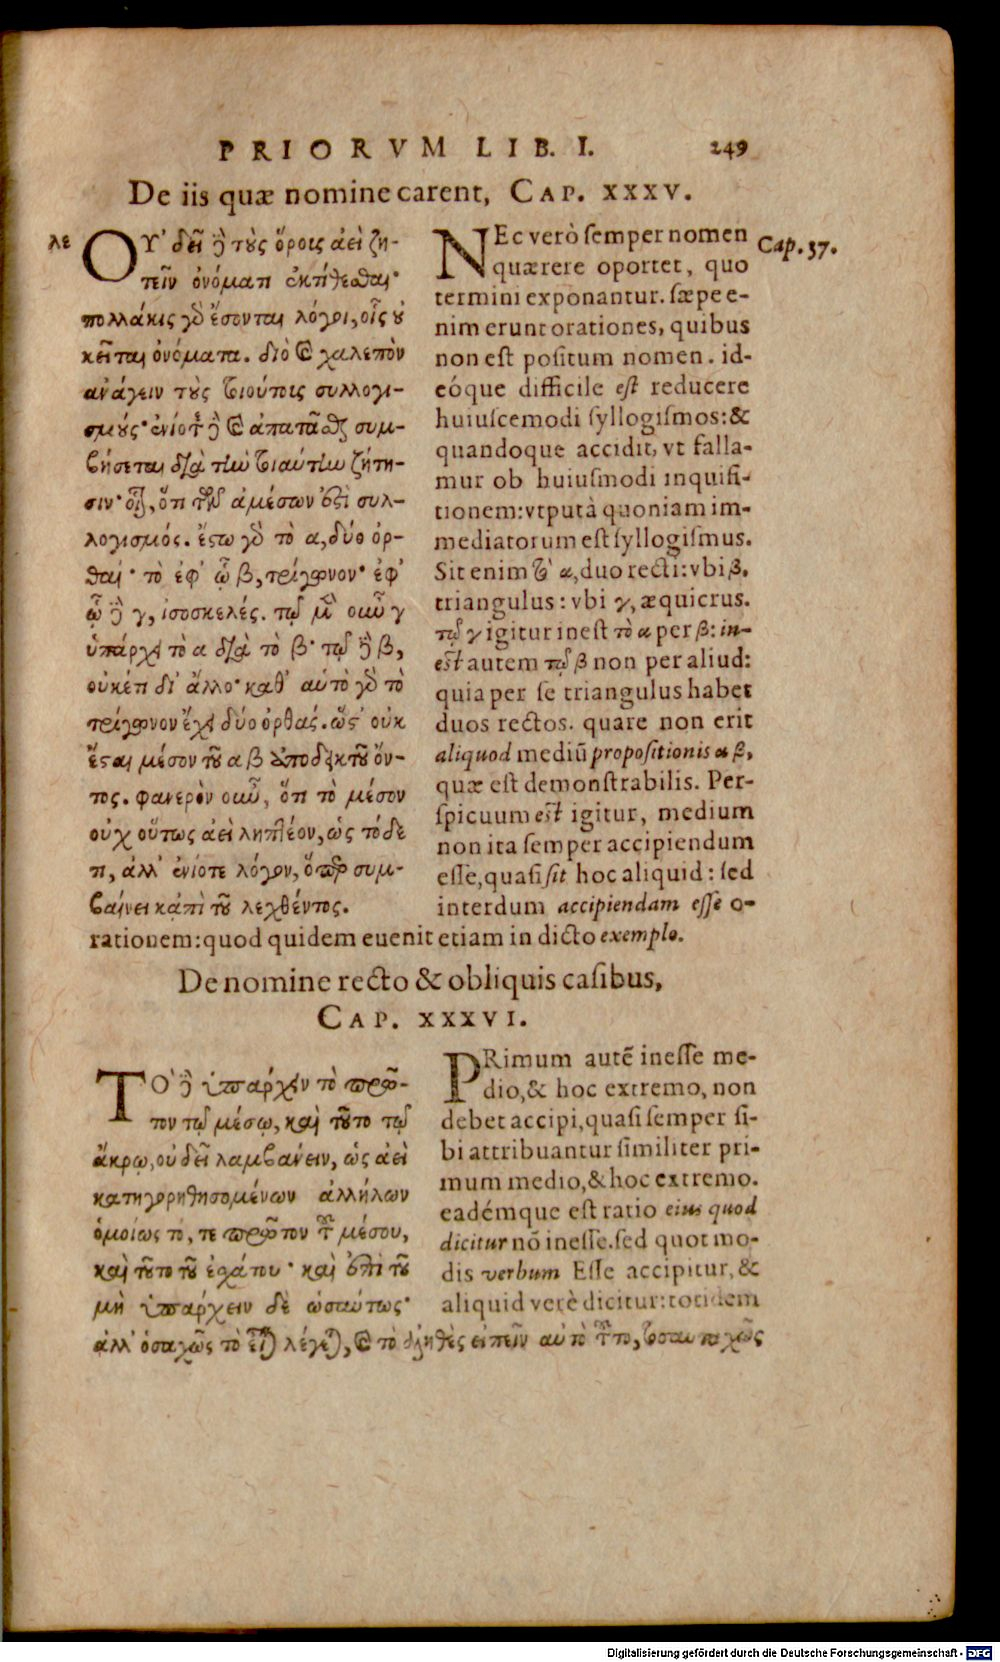 PRIORVM LIB. I. 249
De iis quæ nomine carent, CAP. XXXV.
λε
ΟΥ᾽ δεῖ δὲ τοὺς ὅρους ἀεὶ ζη-
τεῖν ὀνόματι ἐκτίθεσθαι·
πολλάκις γὰρ ἔσονται λόγοι, οἷς οὐ
κεῖται ὀνόματα. διὸ καὶ χαλεπὸν
ἀνάγειν τοὺς τοιούτοις συλλογι-
σμούς· ἐνίοτε δὲ καὶ ἀπατᾶσθαι συμ-
βήσεται διὰ τὴν τοιαύτην ζήτη-
σιν· οἷον, ὅτι τῶν ἀμέσων ἐστὶ συλ-
λογισμός. ἔστω γὰρ τὸ α, δύο ὀρ-
θαί· τὸ ἐφ᾽ ᾧ β, τρίγωνον· ἐφ᾽
ᾧ δὲ γ, ἰσοσκελές. τῷ μὲν οὖν γ
ὑπάρχει τὸ α διὰ τὸ β· τῷ δὲ β,
οὐκέτι δι᾽ ἄλλο· καθ᾽ αὑτὸ γὰρ τὸ
τρίγωνον ἔχει δύο ὀρθάς. ὥστ᾽ οὐκ
ἔσται μέσον τοῦ α β ἀποδεικτοῦ ὄν-
τος. φανερὸν οὖν, ὅτι τὸ μέσον
οὐχ οὕτως ἀεὶ ληπτέον, ὡς τόδε
τι, ἀλλ᾽ ἐνίοτε λόγον, ὅπερ συμ-
βαίνει κἀπὶ τοῦ λεχθέντος.
NEc verò ſemper nomen
quærere oportet, quo
termini exponantur. ſæpe e-
nim erunt orationes, quibus
non eſt poſitum nomen. id-
eóque difficile eſt reducere
huiuſcemodi ſyllogiſmos: &
quandoque accidit, vt falla-
mur ob huiuſmodi inquiſi-
tionem: vtputà quoniam im-
mediatorum eſt ſyllogiſmus.
Sit enim τὸ α, duo recti: vbi β,
triangulus: vbi γ, æquicrus.
τῷ γ igitur ineſt τὸ α per β: in-
eſt autem τῷ β non per aliud:
quia per ſe triangulus habet
duos rectos. quare non erit
aliquod mediū propoſitionis α β,
quæ eſt demonſtrabilis. Per-
ſpicuum eſt igitur, medium
non ita ſemper accipiendum
eſſe, quaſi ſit hoc aliquid: ſed
interdum accipiendam eſſe o-
rationem: quod quidem euenit etiam in dicto exemplo.
Cap. 37.
De nomine recto & obliquis caſibus,
CAP. XXXVI.
ΤΟ᾽ δὲ ὑπάρχειν τὸ πρῶ-
τον τῷ μέσῳ, καὶ τοῦτο τῷ
ἄκρῳ, οὐ δεῖ λαμβάνειν, ὡς ἀεὶ
κατηγορηθησομένων ἀλλήλων
ὁμοίως τό, τε πρῶτον τοῦ μέσου,
καὶ τοῦτο τοῦ ἐσχάτου· καὶ ἐπὶ τοῦ
μὴ ὑπάρχειν δὲ ὡσαύτως·
ἀλλ᾽ ὁσαχῶς τὸ εἶναι λέγεται, καὶ τὸ ἀληθὲς εἰπεῖν αὐτὸ τοῦτο, τοσαυταχῶς
PRimum autē ineſſe me-
dio, & hoc extremo, non
debet accipi, quaſi ſemper ſi-
bi attribuantur ſimiliter pri-
mum medio, & hoc extremo.
eadémque eſt ratio eius quod
dicitur nō ineſſe. ſed quot mo-
dis verbum Eſſe accipitur, &
aliquid verè dicitur: totidem
Digitalisierung gefördert durch die Deutsche Forschungsgemeinschaft - DFG